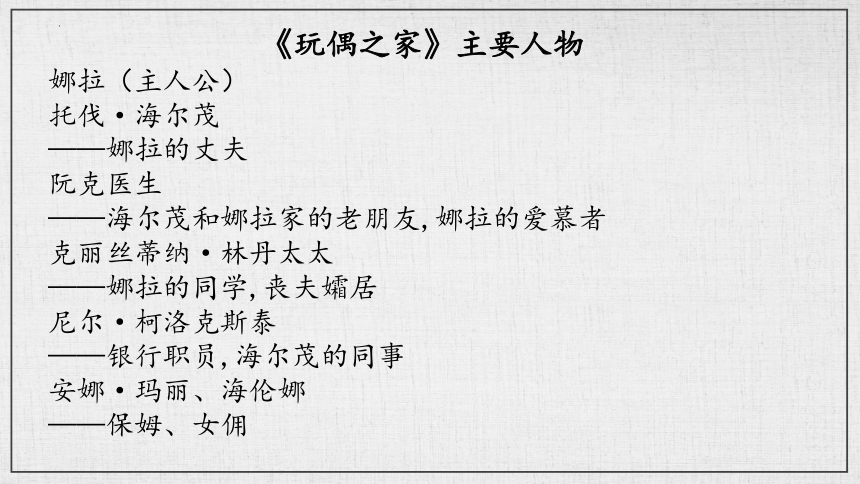 《玩偶之家》主要人物
娜拉（主人公）
托伐·海尔茂
——娜拉的丈夫
阮克医生
——海尔茂和娜拉家的老朋友,娜拉的爱慕者
克丽丝蒂纳·林丹太太
——娜拉的同学,丧夫孀居
尼尔·柯洛克斯泰
——银行职员,海尔茂的同事
安娜·玛丽、海伦娜
——保姆、女佣